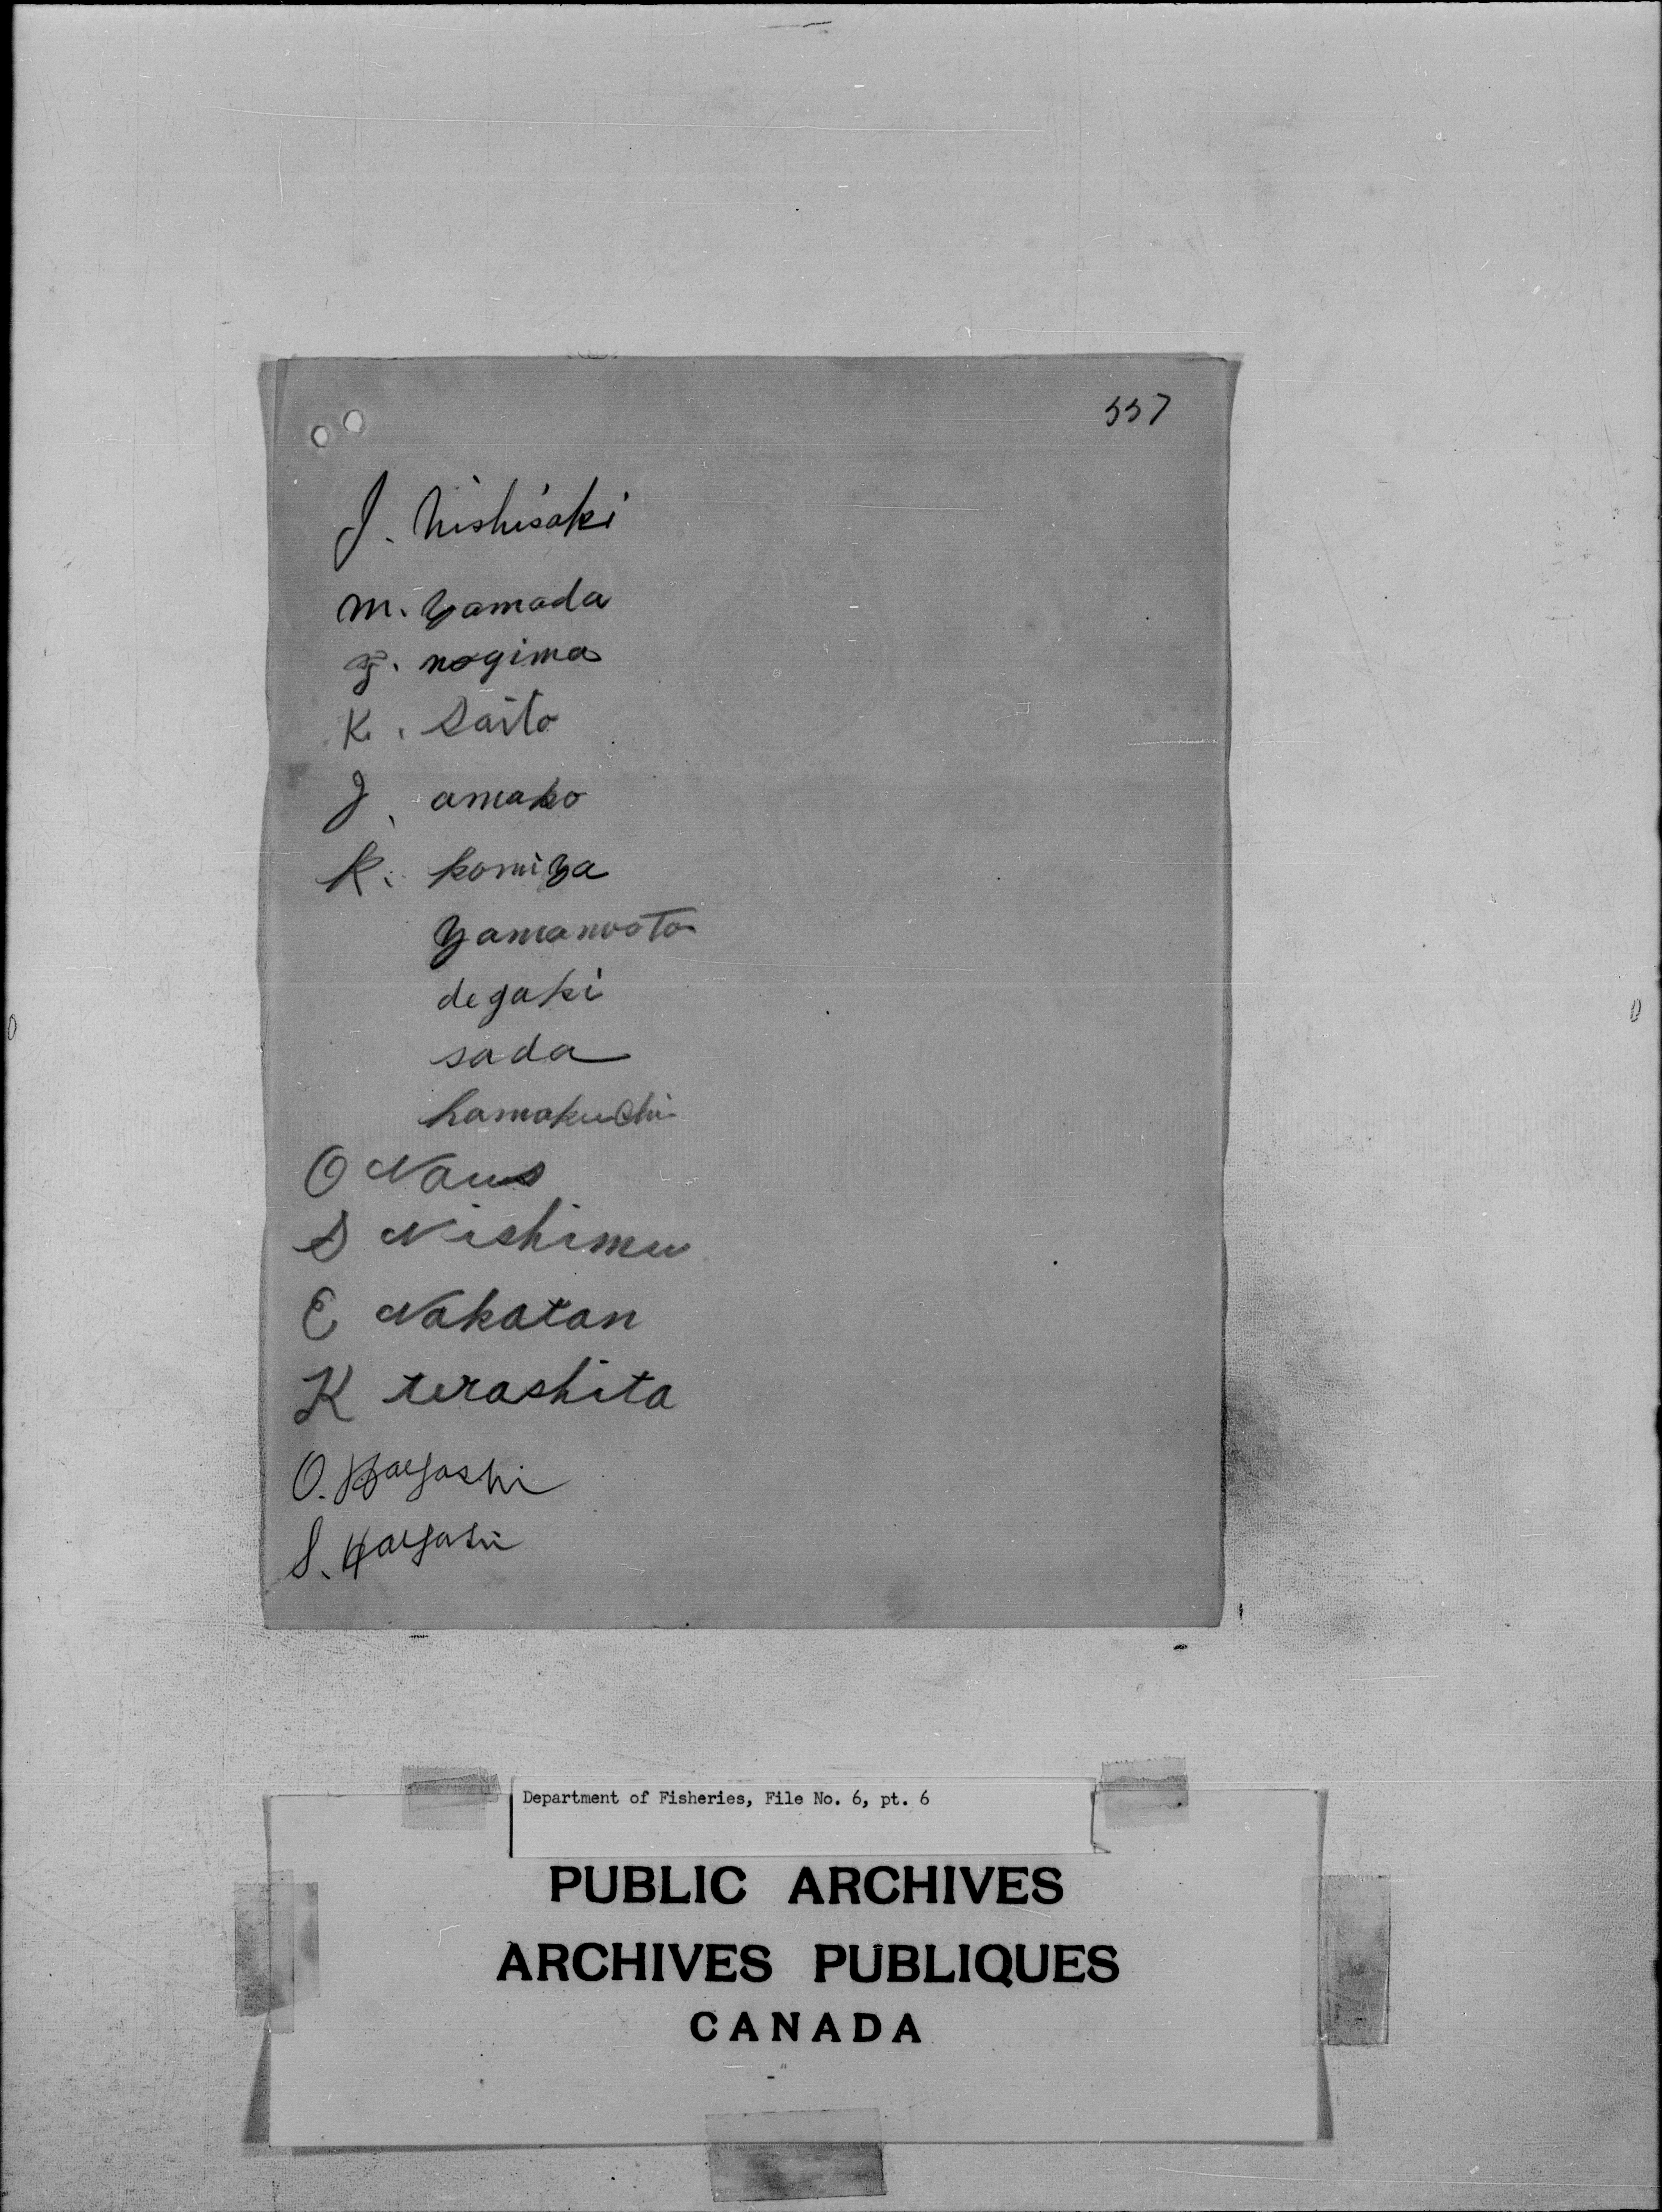 337
J. Nishisaki
M. Yamada
F. nogima
K. Saito
J. amako
K. komiya
Yamamoto
degaki
sada
hamakuchi
O Naus
S Nishimu
E Nakatan
K terashita
O. Hayashi
S. Hayashi
Department of Fisheries, File No. 6, pt. 6
PUBLIC ARCHIVES
ARCHIVES PUBLIQUES
CANADA